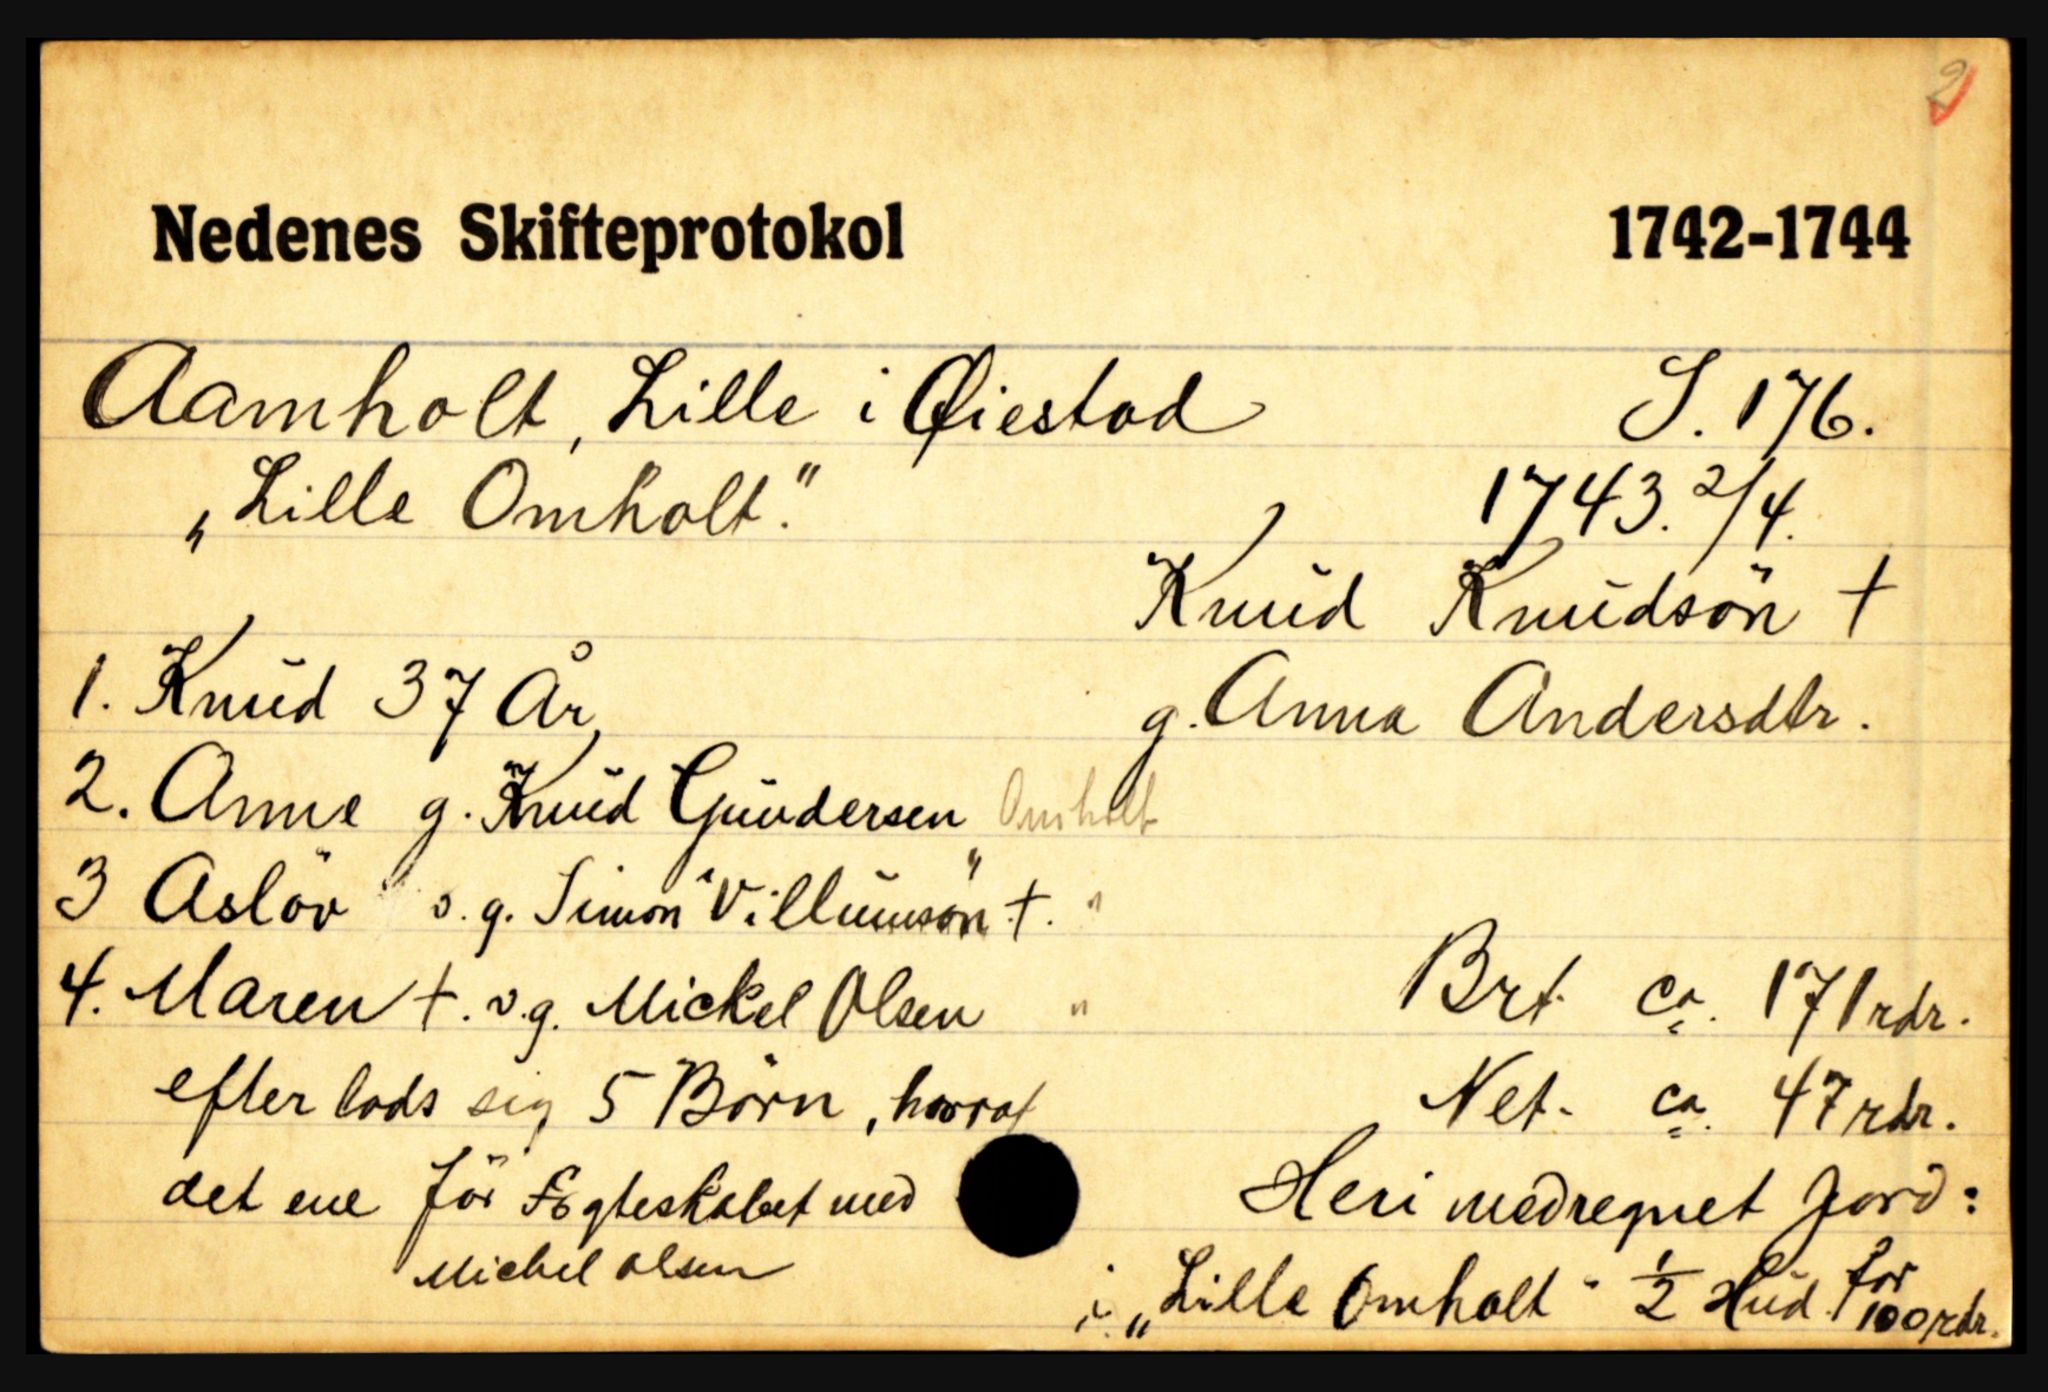 2
Nedenes Skifteprotokol 1742-1744
Aamholt, Lille i Øiestad S. 176.
„Lille Omholt." 1743. 2/4.
Knud Knudsön †
1. Knud 37 År g. Anna Andersdtr.
2. Anne g. Knud Gundersen Omholt
3 Aslöv v. g. Simon Villumsön †. "
4. Maren †. v. g. Mickel Olsen " Brt. ca. 171 rdr.
efterlods sig 5 Börn, hvoraf Net. ca. 47 rdr.
det ene för Egteskabet med Heri medregnet Jord:
Michel Olsen
i „Lille Omholt" 1/2 Hud. for 100 rdr.